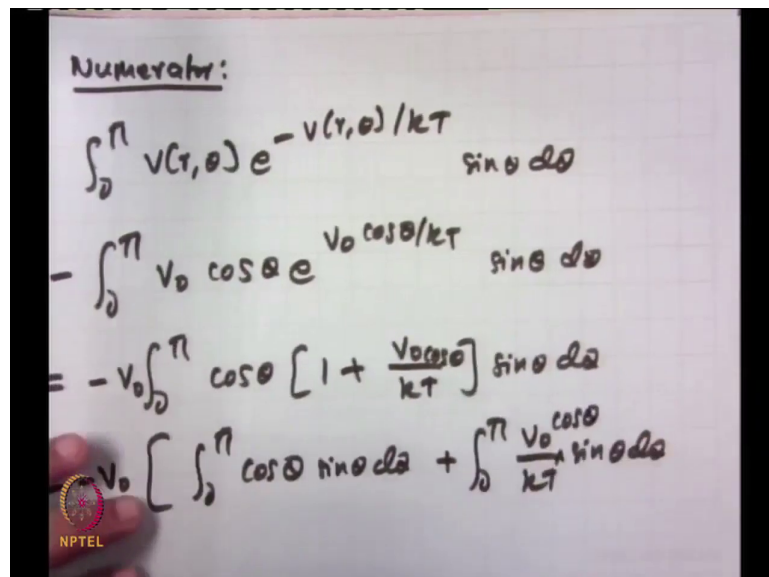 Numerator:
∫₀^π V(r,θ) e^{-V(r,θ)/kT} sinθ dθ
- ∫₀^π V₀ cosθ e^{V₀ cosθ/kT} sinθ dθ
= -V₀ ∫₀^π cosθ [1 + V₀cosθ/kT] sinθ dθ
V₀ [ ∫₀^π cosθ sinθ dθ + ∫₀^π V₀cosθ/kT × sinθ dθ
NPTEL